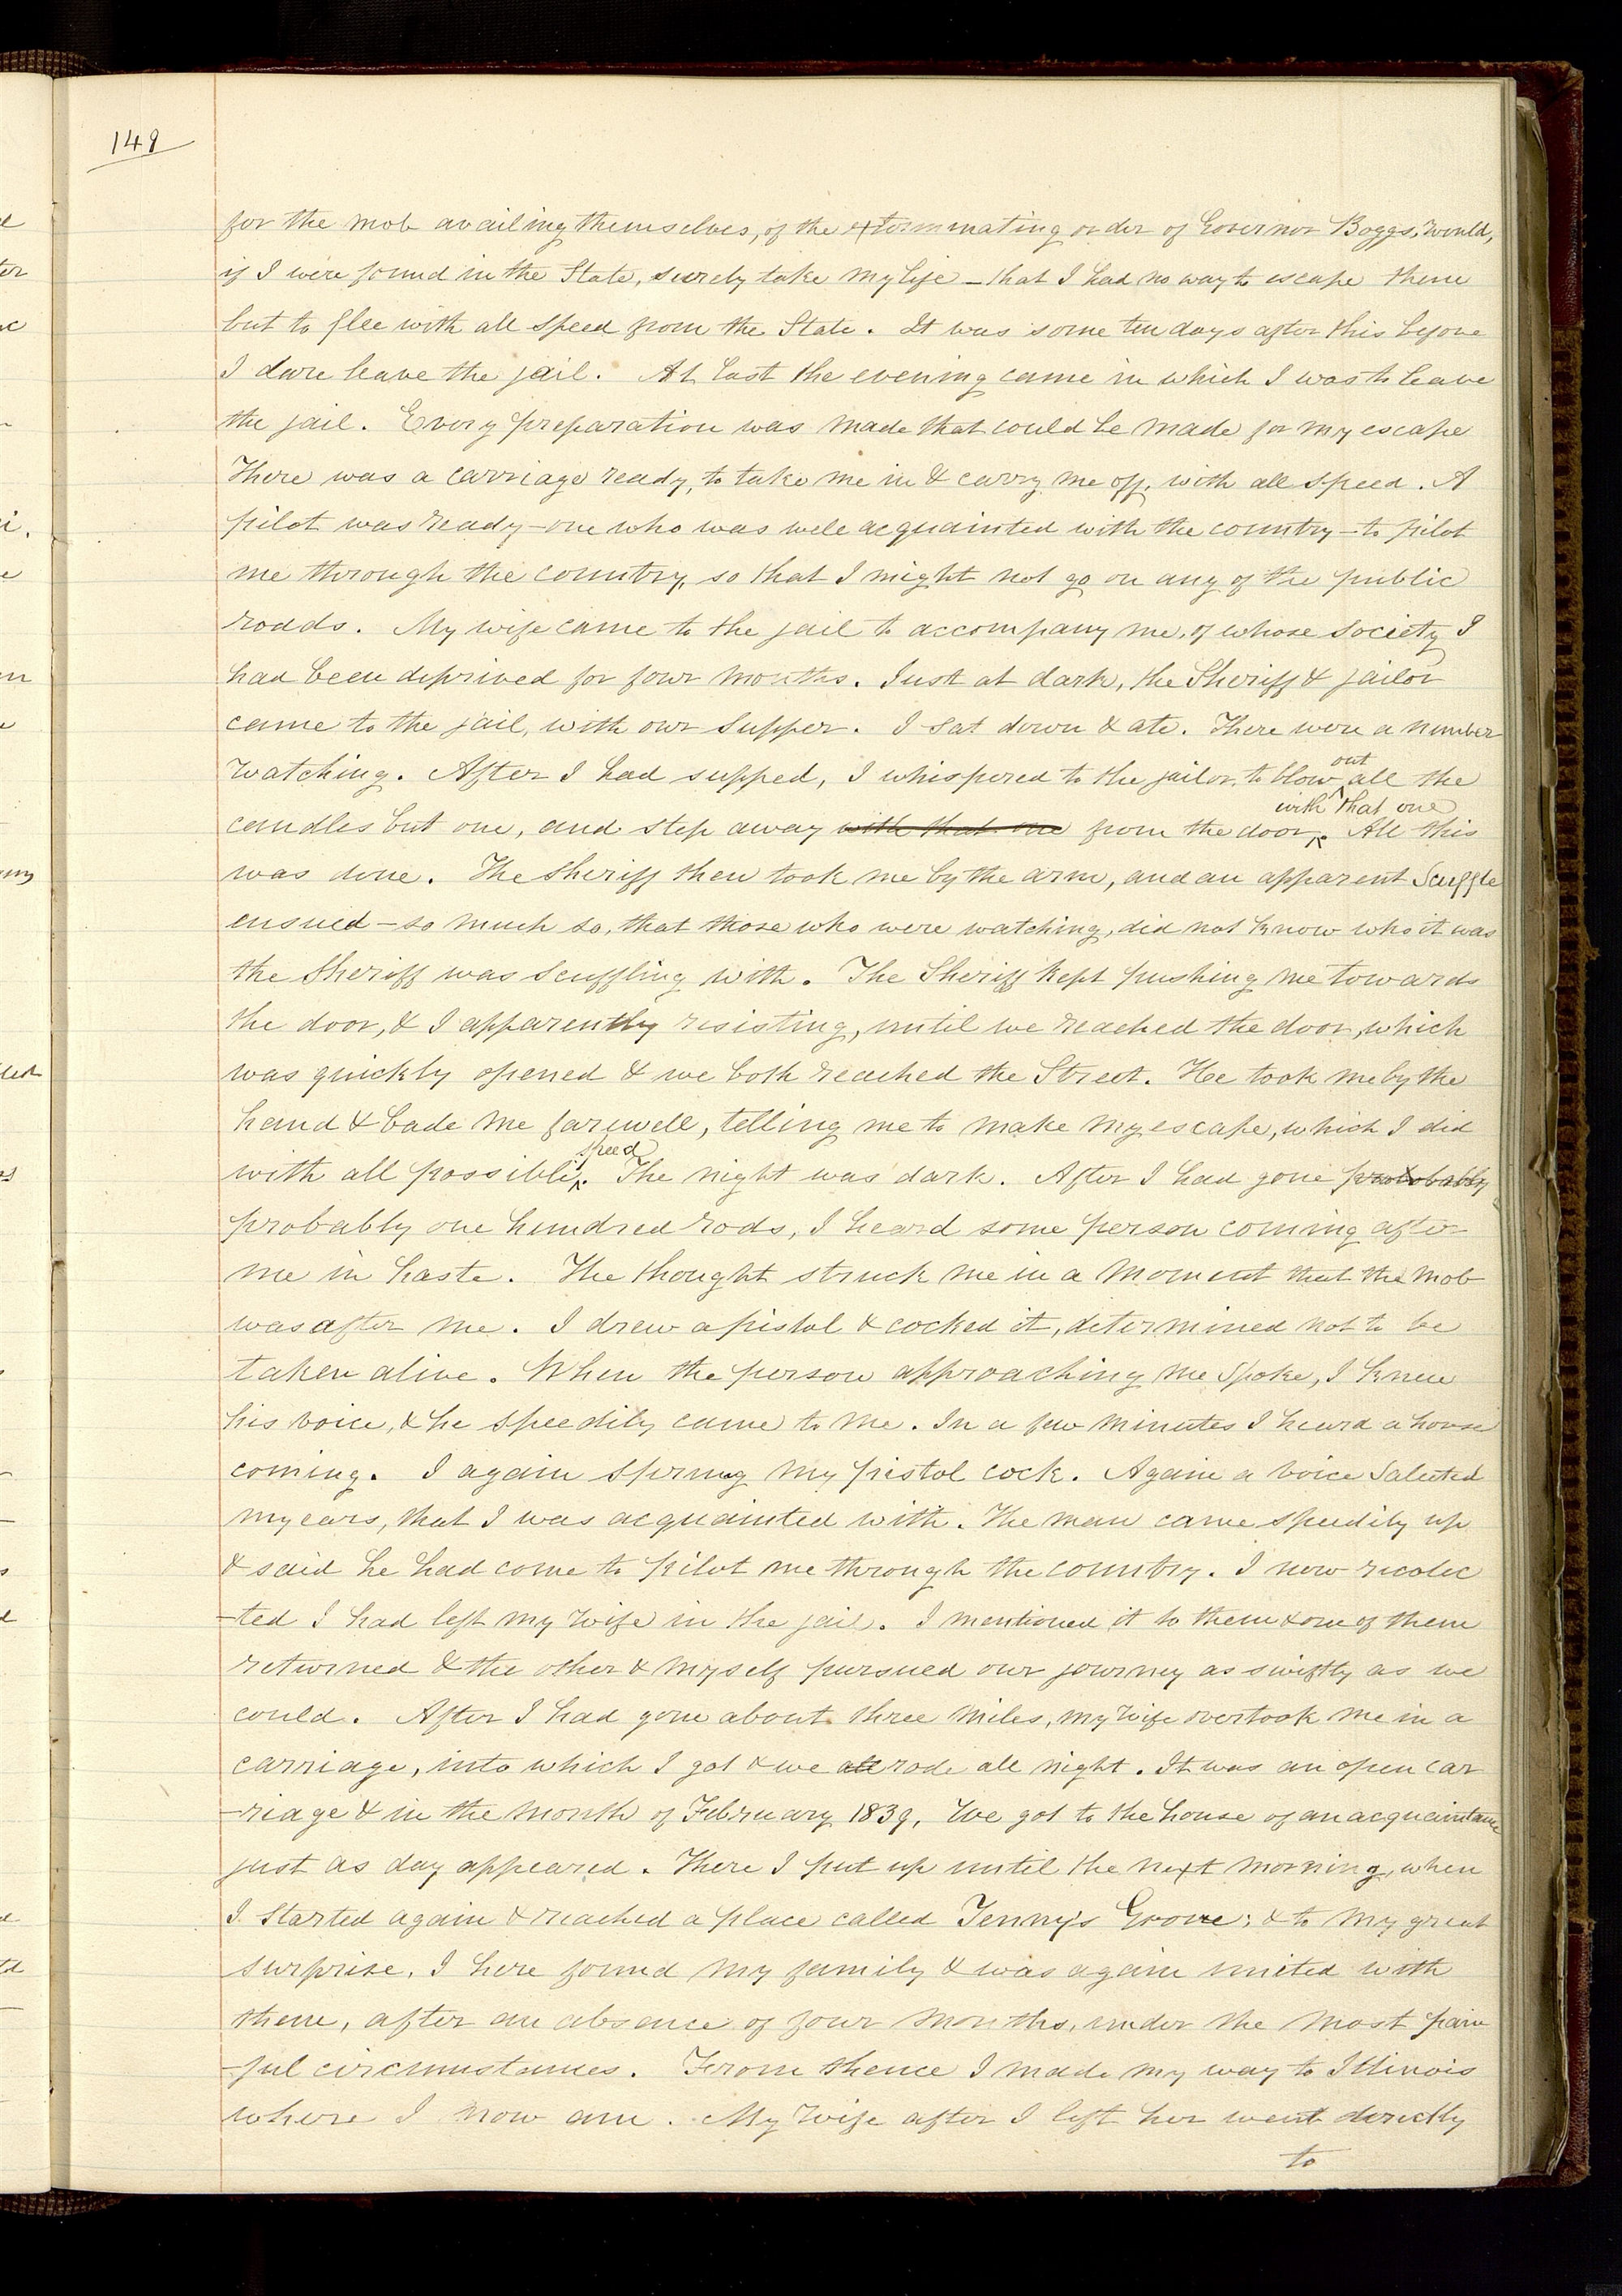 149
for the mob availing themselves, of the exterminating order of Governor Boggs, would,
if I were found in the State, surely take my life — that I had no way to escape them
but to flee with all speed from the State. It was some ten days after this before
I dare leave the jail. At last the evening came in which I was to leave
the jail. Every preparation was made that could be made for my escape
There was a carriage ready, to take me in & carry me off, with all speed. A
pilot was ready — one who was well acquainted with the country — to pilot
me through the country, so that I might not go on any of the public
roads. My wife came to the jail to accompany me, of whose society I
had been deprived for four months. Just at dark, the Sheriff & jailor
came to the jail, with our supper. I sat down & ate. There were a number
watching. After I had supped, I whispered to the jailor, to blow out all the
candles but one, and step away with that one from the door with that one. All this
was done. The Sheriff then took me by the arm, and an apparent scuffle
ensued — so much so, that those who were watching, did not know who it was
the Sheriff was scuffling with. The Sheriff kept pushing me towards
the door, & I apparently resisting, until we reached the door, which
was quickly opened & we both reached the Street. He took me by the
hand & bade me farewell, telling me to make my escape, which I did
with all possible speed. The night was dark. After I had gone
probably one hundred rods, I heard some person coming after
me in haste. The thought struck me in a moment that the mob
was after me. I drew a pistol & cocked it, determined not to be
taken alive. When the person approaching me spoke, I knew
his voice, & he speedily came to me. In a few minutes I heard a horse
coming. I again sprung my pistol cock. Again a voice saluted
my ears, that I was acquainted with. The man came speedily up
& said he had come to pilot me through the country. I now recolec
-ted I had left my wife in the jail. I mentioned it to them & one of them
returned & the other & myself pursued our journey as swiftly as we
could. After I had gone about three miles, my wife overtook me in a
carriage, into which I got & we all rode all night. It was an open car
-riage & in the month of February 1839. We got to the house of an acquaintance
just as day appeared. There I put up until the next morning, when
I started again & reached a place called Tenny's Grove; & to my great
surprise, I here found my family & was again united with
them, after an absence of four months, under the most pain
-ful circumstances. From thence I made my way to Illinois
where I now am. My wife after I left her went directly
to